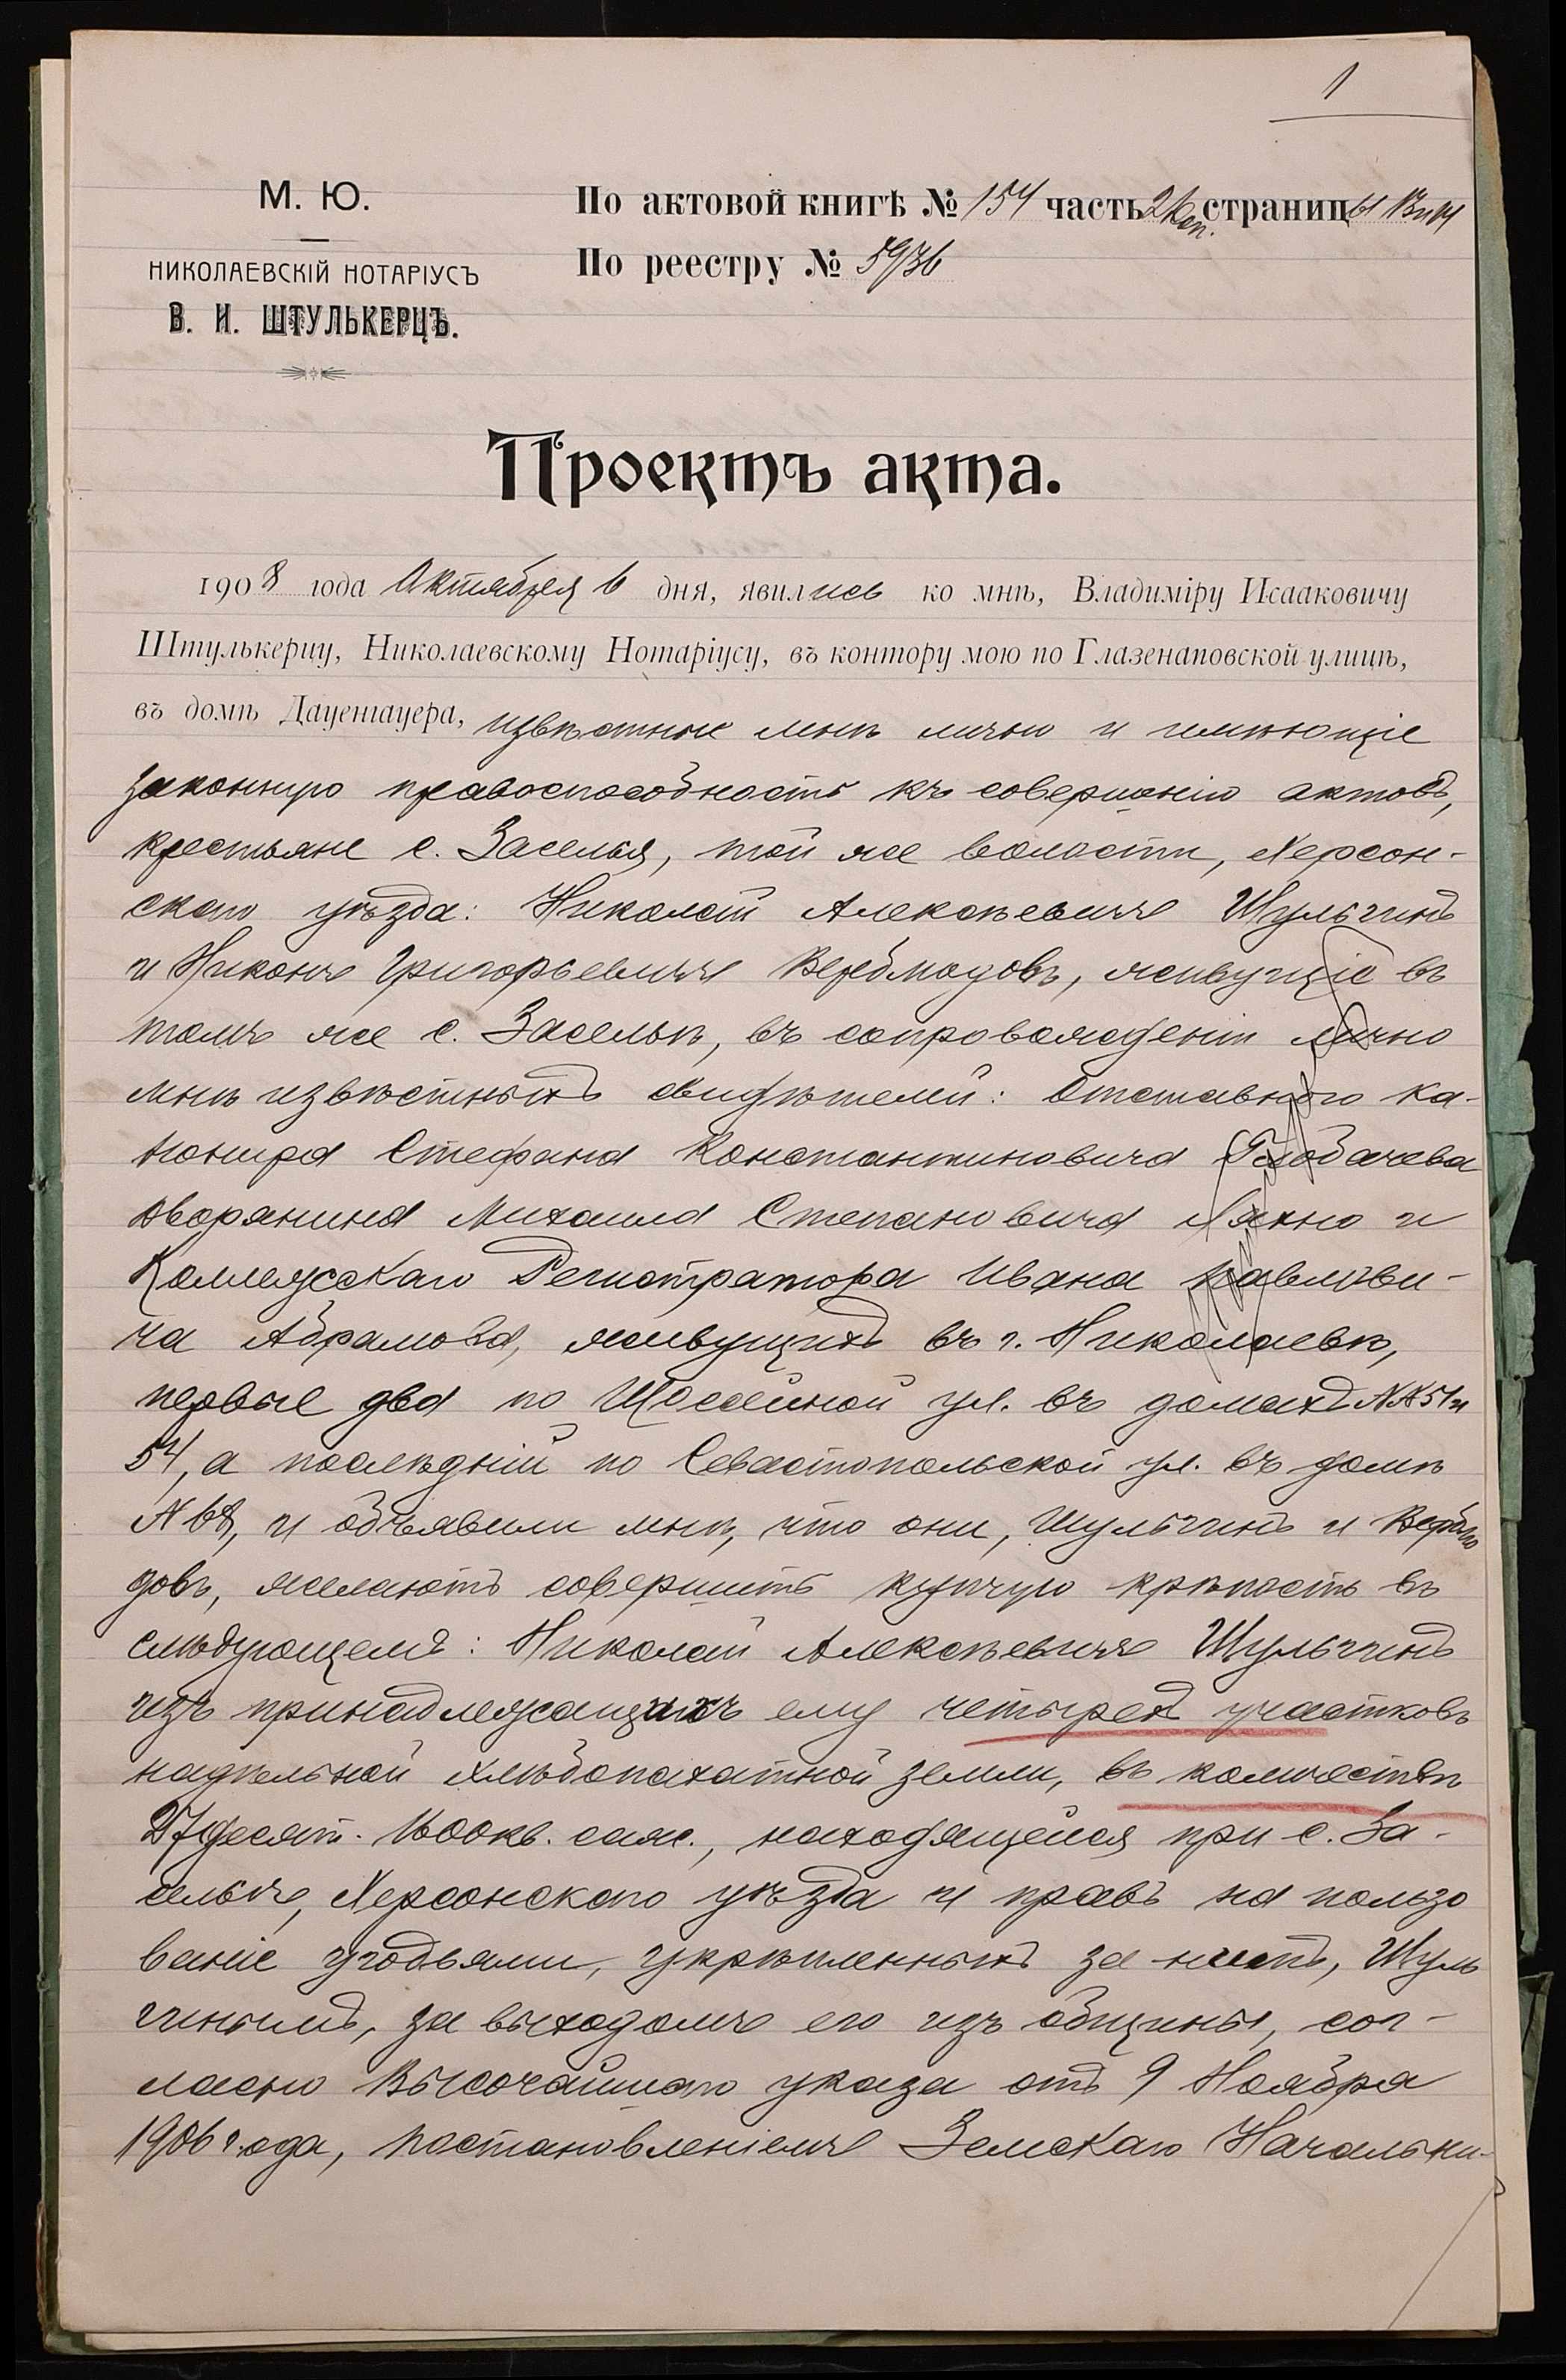 1
М. Ю.
НИКОЛАЕВСКІЙ НОТАРІУСЪ
В. И. ШТУЛЬКЕРЦЪ.
По актовой книгѣ № 154 часть 2 страницы
По реестру № 5936
Проектъ акта.
1908 года Октября 6 дня, явились ко мнѣ, Владиміру Исааковичу
Штулькерцу, Николаевскому Нотаріусу, въ контору мою по Глазенаповской улицѣ,
въ домѣ Дауенгауера, извѣстные мнѣ лично и имѣющіе
законную правоспособность къ совершенію актовъ,
крестьяне с. Заселья, той же волости, Херсон-
скаго уѣзда: Николай Алексѣевичъ Шульгинъ
и Никонъ Григорьевичъ Вербмодовъ, живущіе въ
томъ же с. Засельѣ, въ сопровожденіи лично
мнѣ извѣстныхъ свидѣтелей: отставного ка-
нонира Стефана Константиновича Глобачева
дворянина Михаила Степановича Лахно и
Коллежскаго Регистратора Ивана Павлови-
ча Абрамова, живущихъ въ г. Николаевѣ,
первые два по Шоссейной ул. въ домахъ №№ 51 и
54, а послѣдній по Севастопольской ул. въ домѣ
№ 68, и объявили мнѣ, что они, Шульгинъ и
довъ, желаютъ совершить купчую крѣпость въ
слѣдующемъ: Николай Алексѣевичъ Шульгинъ
изъ принадлежащихъ ему четырехъ участковъ
надѣльной хлѣбопахатной земли, въ количествѣ
27 десят. 1600 кв. саж., находящейся при с. За-
сельѣ, Херсонскаго уѣзда и правъ на пользо
ваніе угодьями, укрѣпленныхъ за нимъ, Шуль
гинымъ, за выходомъ его изъ общины, сог-
ласно Высочайшаго указа отъ 9 Ноября
1906 года, постановленіемъ Земскаго Начальни-